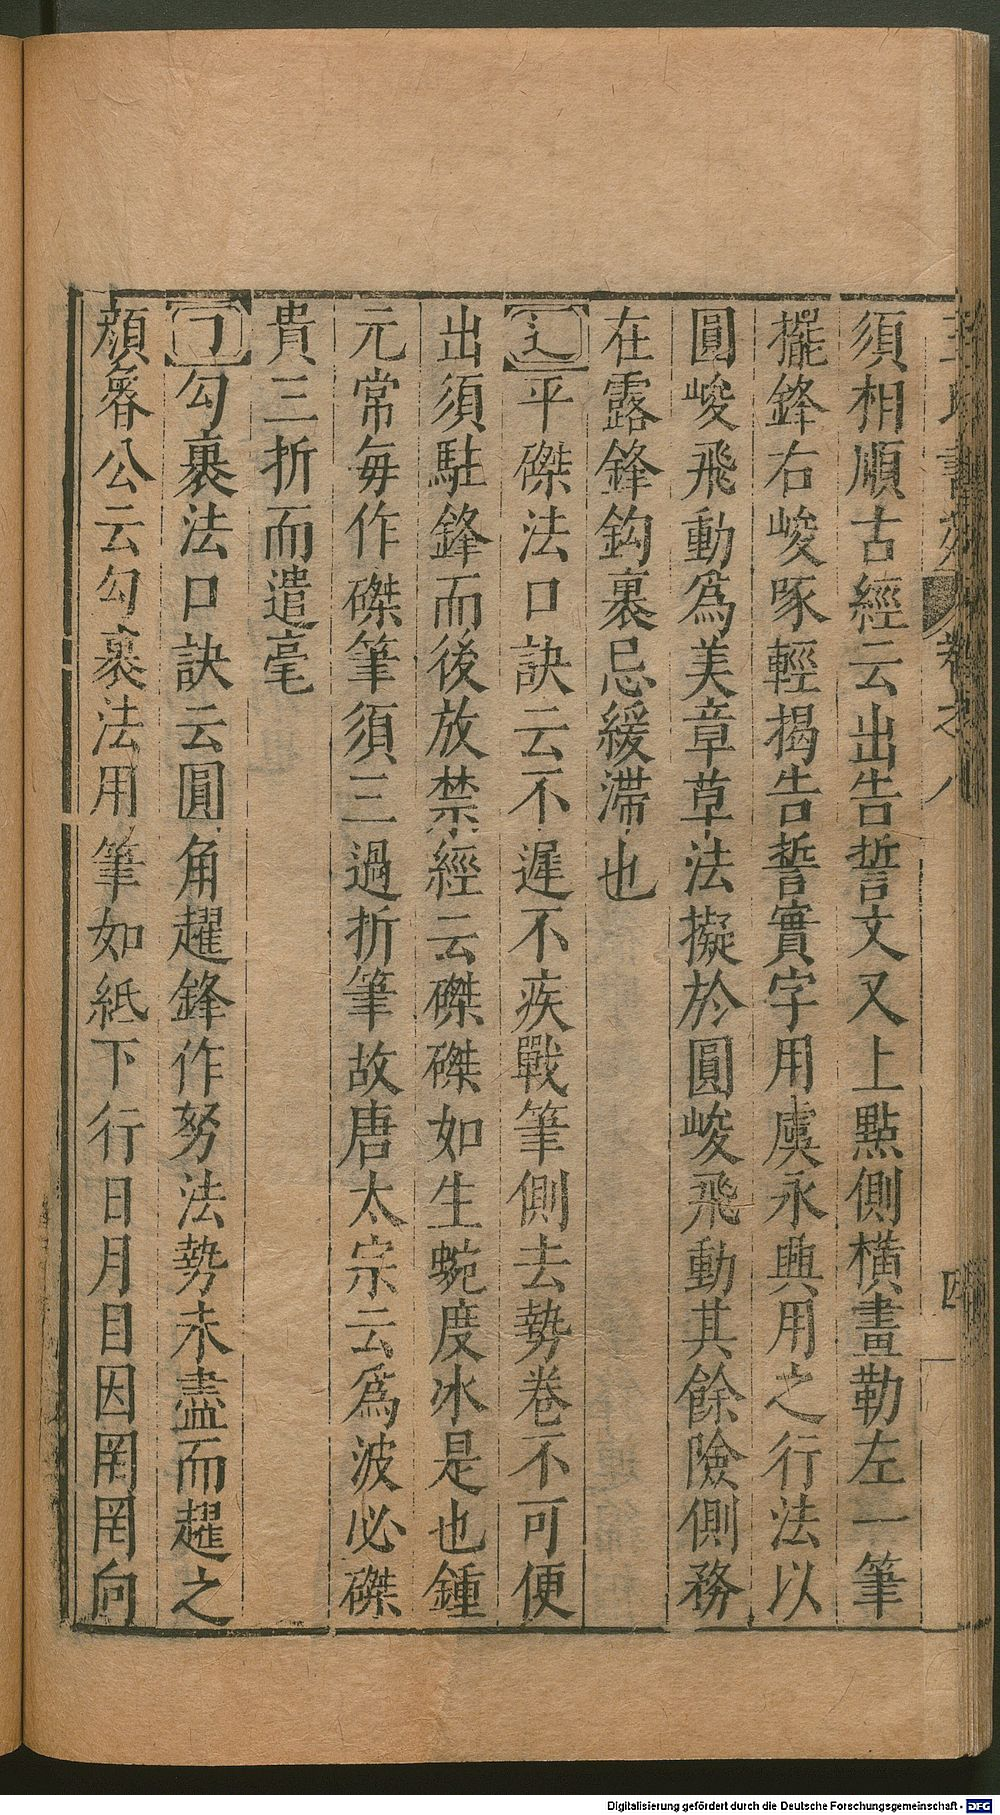 須相順古經云出告誓文又上點側橫畫勒左一筆
擺鋒右峻啄輕揭告誓實字用虞永興用之行法以
圓峻飛動爲美章草法擬於圓峻飛動其餘險側務
在露鋒鈎裹忌緩滯也
辶平磔法口訣云不遲不疾戰筆側去勢卷不可便
出須駐鋒而後放禁經云磔磔如生蜿度冰是也鍾
元常每作磔筆須三過折筆故唐太宗云爲波必磔
貴三折而遣毫
㇆勾裹法口訣云圓角趯鋒作努法勢未盡而趯之
顏魯公云勾裹法用筆如紙下行日月目因罔罔向
書苑 卷之八
四
Digitalisierung gefördert durch die Deutsche Forschungsgemeinschaft - DFG